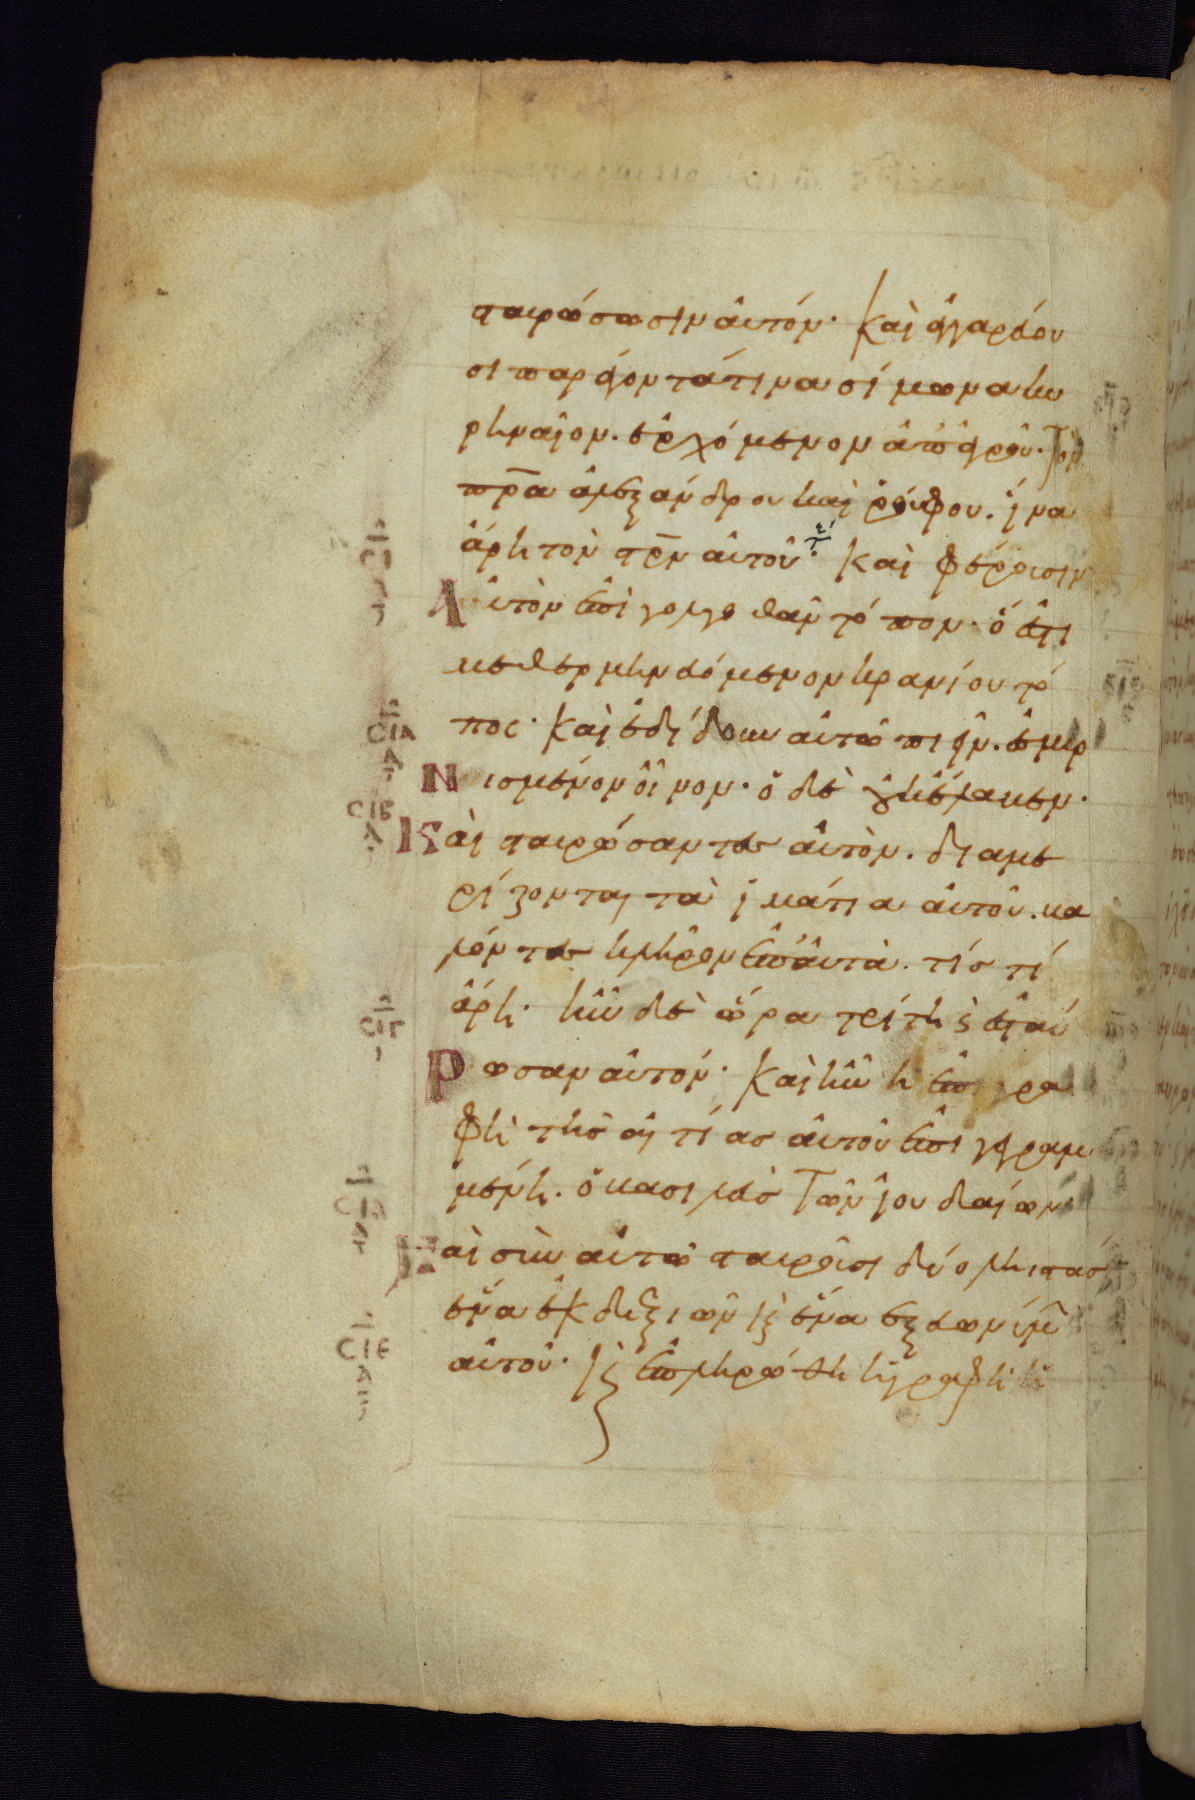 σταυρώσωσιν αὐτόν· Καὶ ἀγγαρεύου
σι παράγοντά τινα σίμωνα κυ
ρηναῖον. ἐρχόμενον ἀπ' ἀγροῦ. Τὸν
πρ̅α ἀλεξάνδρου καὶ ῥούφου. ἵνα
CΙ
ἄρη τὸν στρ̅ν αὐτοῦ· Καὶ φέρουσιν
Αὐτὸν ἐπὶ γολγοθᾶν τόπον· ὅ ἐστι
μεθερμηνευόμενον κρανίου τό
CΙΑ
πος· Καὶ ἐδίδουν αὐτῶ πιεῖν. ἐσμυρ
Νισμένον οἶνον· ὁ δὲ οὐκ ἔλαβεν·
CΙΒ
Καὶ σταυρώσαντες αὐτὸν. διαμε
ρίζονται τὰ ἱμάτια αὐτοῦ. βα
λόντες κλῆρον ἐπ' αὐτὰ. τίς τί
CΙΓ
ἄρη· ἦν δὲ ὥρα τρίτη ϗ ἐσταύ
Ρωσαν αὐτόν· Καὶ ἦν ἡ ἐπιγρα
φὴ τῆς αἰτίας αὐτοῦ ἐπιγεγραμ
CΙΔ
μένη. ὁ βασιλεὺς Τῶν ἰουδαίων·
Καὶ σὺν αὐτῶ σταυροῦσι δύο ληστάς
ἕνα ἐκ δεξιῶν ϗ ἕνα ἐξ εὐωνύμ
CΙΕ
αὐτοῦ· ϗ ἐπληρώθη ἡ γραφὴ ἡ